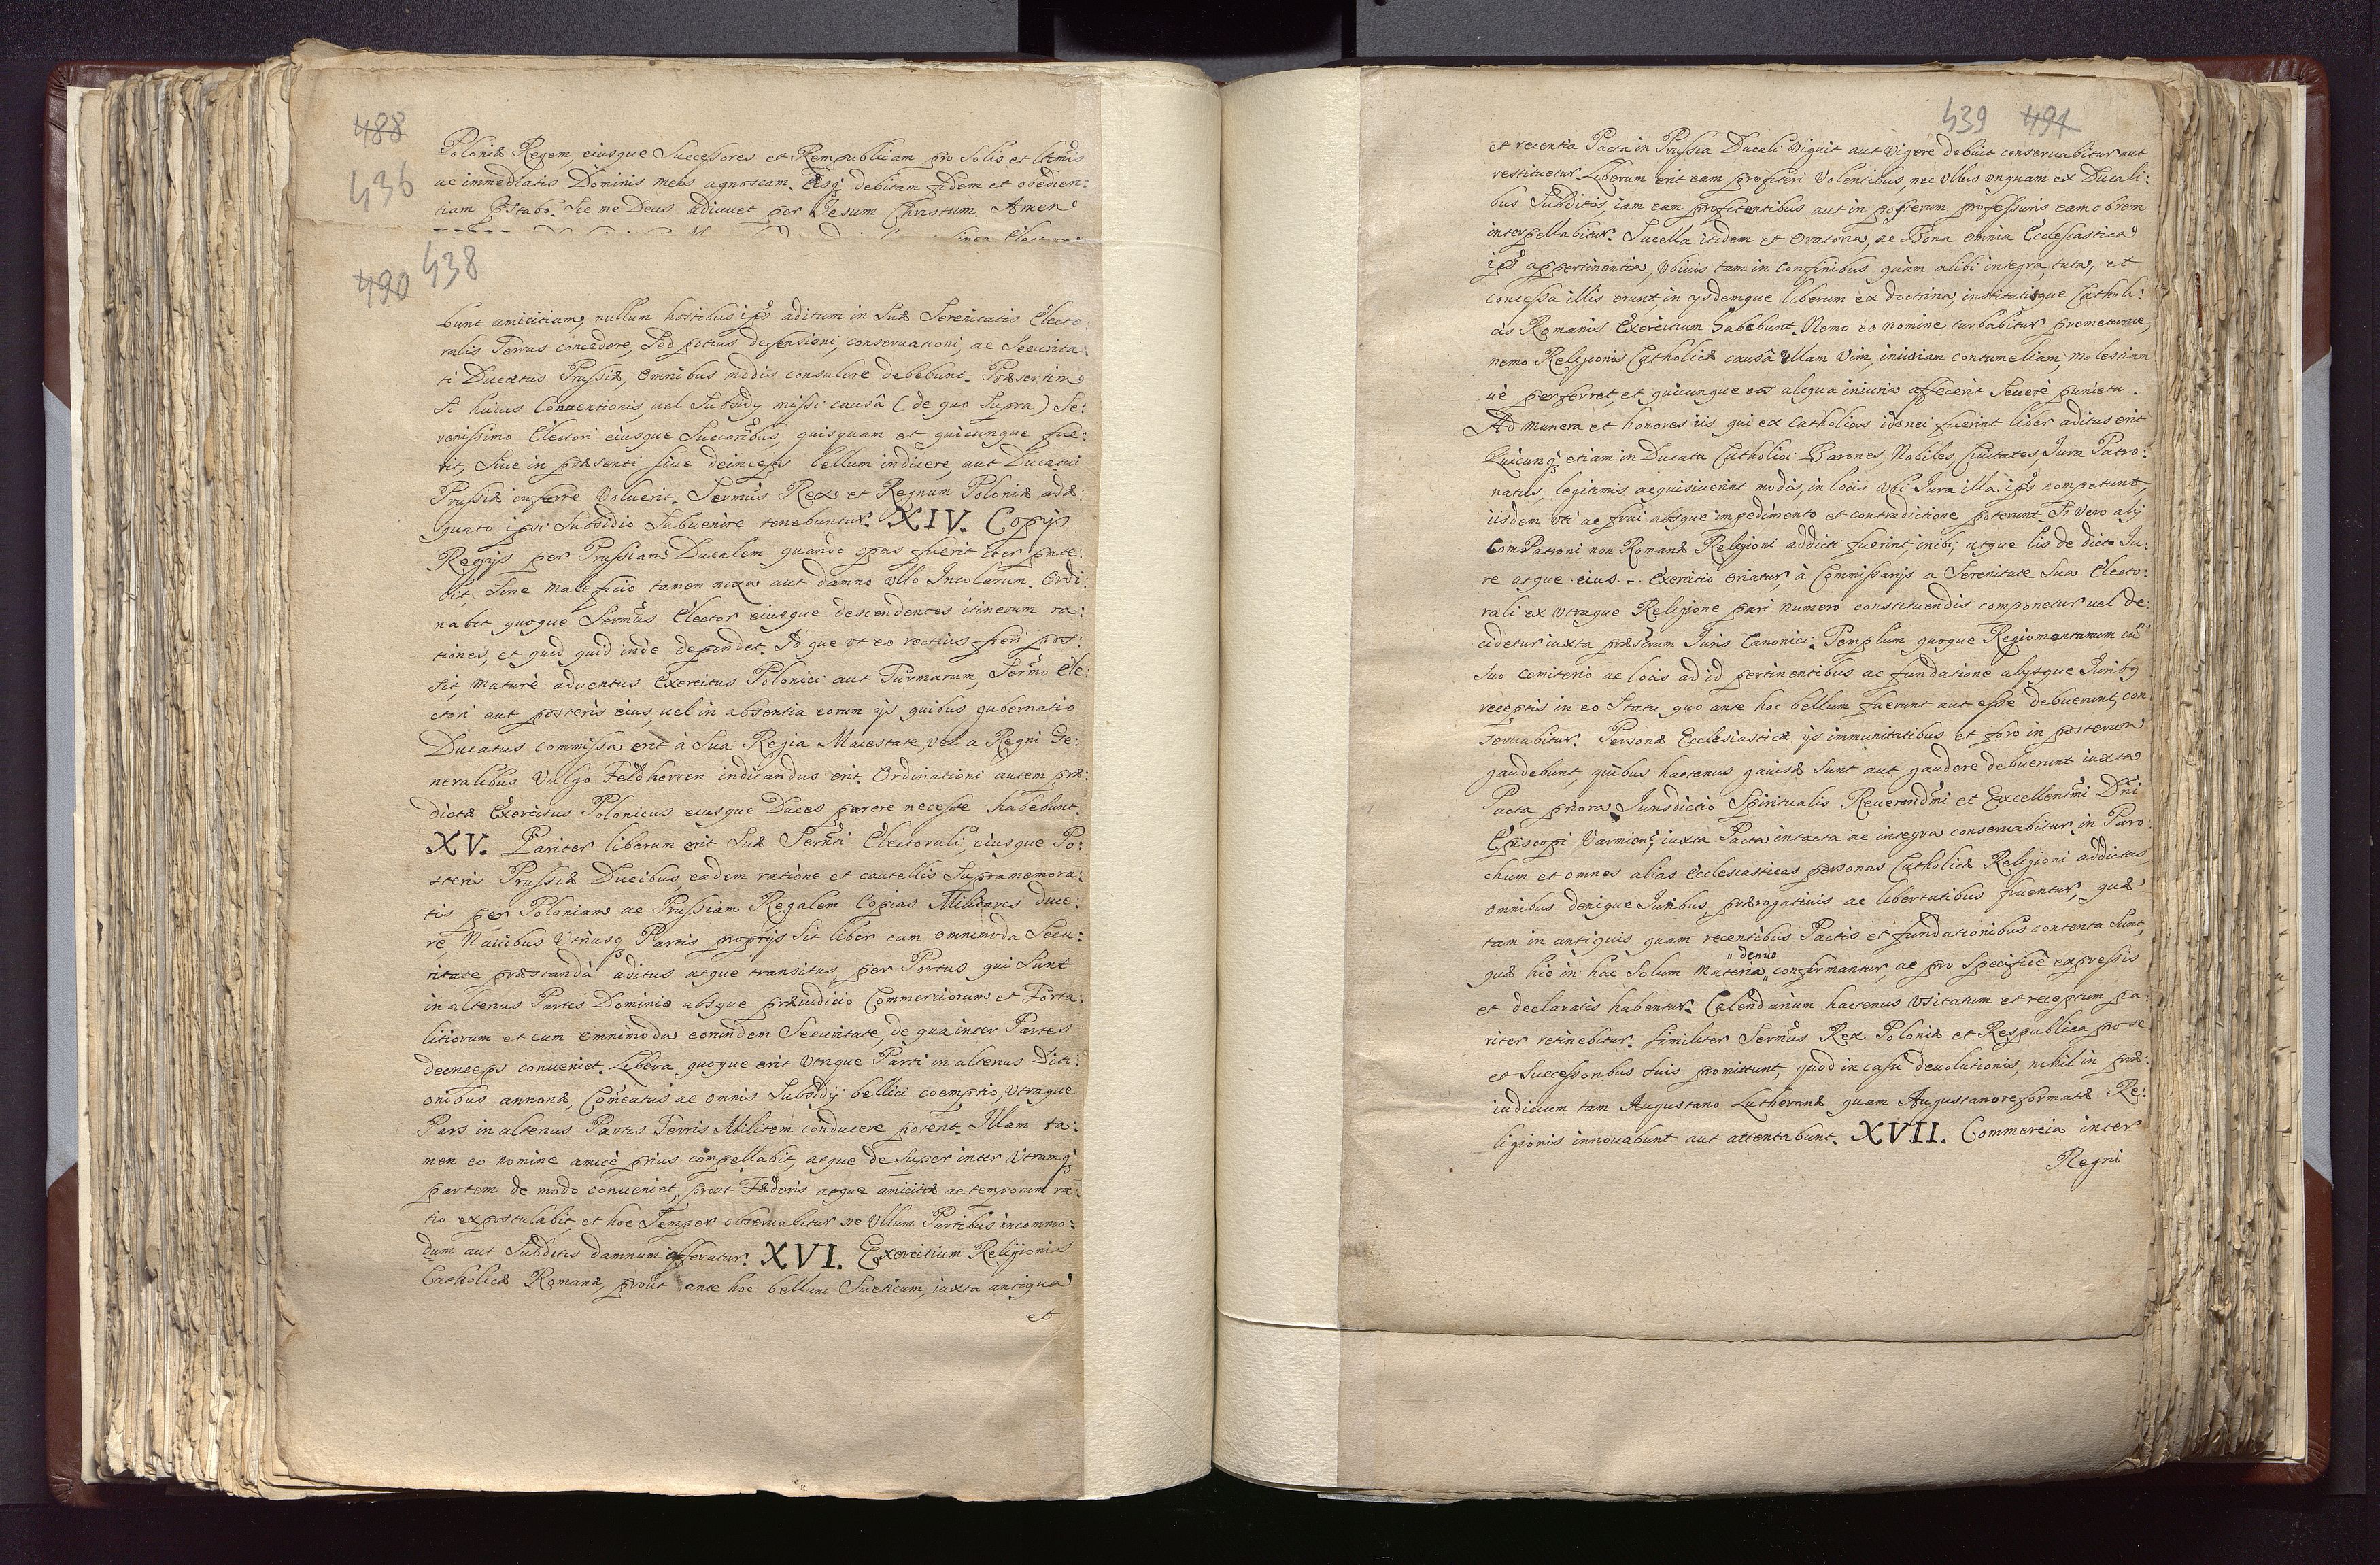 488
436
Poloniæ Regem, eiusque Successores et Rempublicam pro Solis et
ac immediatis Dominis meis agnoscam. debitam fidem et obedien:
tiam Sic me Deus adiuuet per Iesum Christum. Amen
490 438
bunt amicitiam, nullum hostibus aditum in Suæ Serenitatis Electo:
ralis Terras concedere, Sed potius defensioni, conseruationi, ac Securita:
ti Ducatus Prussiæ, omnibus modis consulere debebunt. Præsertim
Si huius Conuentionis, uel Subsidy missi causâ (de quo Supra) Se:
renissimo Electori eiusque quisquam et quicunque fue:
rit, Siue in præsenti siue deinceps bellum indicere, aut Ducatui
Prussiæ inferre Voluerit. Sermus Rex et Regnum Poloniæ adæ:
quato ipsi Subsidio Subuenire tenebuntur. XIV. Copijs
Regijs per Prussiam Ducalem quando opus fuerit iter pate:
bit, Sine maleficio tamen noxa aut damno ullo Incolarum. Ordi:
nabit quoque Sermus Elector eiusque descendentes itinerum ra:
tiones, et quid quid inde dependet. Atque ut eo rectius fieri pos:
sit, maturè aduentus Exercitus Polonici aut Turmarum, Sermo Ele:
ctori aut posteris eius, uel in absentia eorum ijs quibus gubernatio
Ducatus commissa erit à Sua Regia Maiestate, vel a Regni Ge:
neralibus Vulgo Feldherren indicandus erit. Ordinationi autem præ:
dictæ Exercitus Polonicus eiusque Duces parere necesse habebunt.
XV. Pariter liberum erit Suæ Electorali, eiusque Po:
steris Prussiæ Ducibus, eadem ratione et cautellis Supra memora:
tis per Poloniam ac Prussiam Regalem Copias Militares duce:
re, Nauibus Vtriusq Partis proprijs Sit liber cum omnimoda Secu:
ritate præstanda aditus atque transitus, per Portus qui Sunt
in alterius Partis Dominio absque præiudicio Commerciorum et Forta:
litiorum et cum omnimoda eorundem Securitate, de qua inter Partes
deinceps conueniet. Libera quoque erit Vtrique Parti in alterius Diti:
onibus annonæ, Comeatus ac omnis Subsidij bellici coemptio, Vtraque
Pars in alterius Partis Terris Militem conducere poterit. Illam ta:
men eo nomine amicè prius compellabit, atque de super inter Vtramq
partem de modo conueniet, prout Fæderis atque amicitiæ ac temporum ra:
tio expostulabit, et hoc Semper obseruabitur ne Vllum Partibus incommo:
dum aut Subditis damnum afferatur. XVI. Exercitium Religionis
Catholicæ Romanæ, prout ante hoc bellum Sueticum, iuxta antiqua
et
439 491
et recentia Pacta in Prussia Ducali Viguit aut Vigere debuit conseruabitur aut
restituetur. Liberum erit eam profiteri Volentibus, nec Vllus unquam ex Ducali:
bus Subditis, iam eam profitentibus aut in posterum professuris eam obrem
interpellabitur. Sacella itidem et Oratoria, ac Bona omnia Ecclesiastica
appertinentia, Vbiuis tam in Confinibus quàm alibi integra, tuta, et
concessa illis erunt, in ysdemque liberum ex doctrina, institutisque Catholi:
cis Romanis Exercitum habebunt. Nemo eo nomine turbabitur premeturue,
nemo Religionis Catholicæ causâ Vllam Vim, iniuriam contumeliam, molestiam
uè perferret, et quicunque eos aliqua iniuria affecerit Seuerè punietu.
Ad munera et honores iis qui ex Catholicis idonei fuerint liber aditus erit
Quicunq etiam in Ducatu Catholici Barones, Nobiles, Ciuitates, Iura Patro:
natus, legitimis acquisiuerint modis, in locis vbi Iura illa competunt,
iisdem uti ac frui absque impedimento et contradictione poterunt. Si Vero alij
ComPatroni non Romanæ Religioni addicti fuerint, inibi, atque lis de dicto Iu:
re atque eius - Exercitio oriatur, à Commissarijs a Serenitate Sua Electo:
rali ex Vtraque Religione pari numero constituendis componetur uel de:
cidetur iuxta Iuris Canonici. Templum quoque Regiomontanum cū
Suo Cemiterio ac locis ad id pertinentibus ac fundatione alysque Iuribq
receptis in eo Statu quo ante hoc bellum fuerunt aut esse debuerunt, con
seruabitur. Personæ Ecclesiasticæ ijs immunitatibus et foro in posterum
gaudebunt, quibus hactenus gauisæ Sunt aut gaudere debuerunt iuxta
Pacta priora. Iurisdictio Spiritualis Reuerendmi et Excellentmi Dni
Episcopi Varmien; iuxta Pacta intacta ac integra conseruabitur in Paro
chum et omnes alias Ecclesiasticas personas Catholicæ Religioni addictas,
omnibus denique Iuribus, prærogatiuis ac libertatibus fruentur, quæ
tam in antiquis quam recentibus Pactis et fundationibus contenta Sunt,
quæ hic in hac Solum Materia, "denuo confirmantur, ac pro Specificè expressis
et declaratis habentur. Calendarium hactenus Vsitatum et receptum pa:
riter retinebitur. Similiter Sermus Rex Poloniæ et Respublica pro se
et Successoribus suis promittunt, quod in casu deuolutionis, nihil in præ:
iudicium tam Augustano Lutheranæ quam Augustanoreformatæ Re:
ligionis innouabunt aut attentabunt. XVII. Commercia inter
Regni